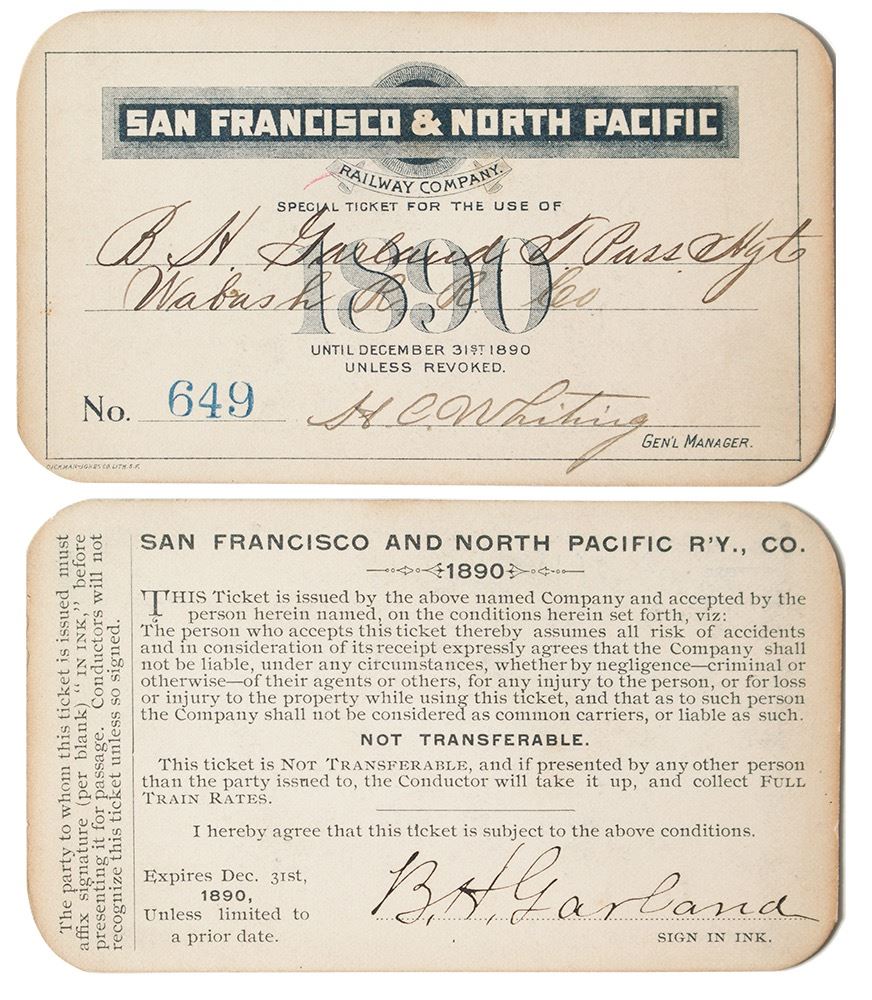 SAN FRANCISCO & NORTH PACIFIC
RAILWAY COMPANY.
SPECIAL TICKET FOR THE USE OF
1890
B H Garland T Pass Agt
Wabash R R Co
UNTIL DECEMBER 31ST 1890
UNLESS REVOKED.
No. 649
H C. Whiting
GEN'L MANAGER.
DICKMAN-JONES CO. LITH. S.F.
SAN FRANCISCO AND NORTH PACIFIC R'Y., CO.
1890
THIS Ticket is issued by the above named Company and accepted by the
person herein named, on the conditions herein set forth, viz:
The person who accepts this ticket thereby assumes all risk of accidents
and in consideration of its receipt expressly agrees that the Company shall
not be liable, under any circumstances, whether by negligence—criminal or
otherwise—of their agents or others, for any injury to the person, or for loss
or injury to the property while using this ticket, and that as to such person
the Company shall not be considered as common carriers, or liable as such.
NOT TRANSFERABLE.
This ticket is NOT TRANSFERABLE, and if presented by any other person
than the party issued to, the Conductor will take it up, and collect FULL
TRAIN RATES.
I hereby agree that this ticket is subject to the above conditions.
Expires Dec. 31st,
1890,
Unless limited to
a prior date.
B. H. Garland
SIGN IN INK.
The party to whom this ticket is issued must
affix signature (per blank) "IN INK," before
presenting it for passage. Conductors will not
recognize this ticket unless so signed.